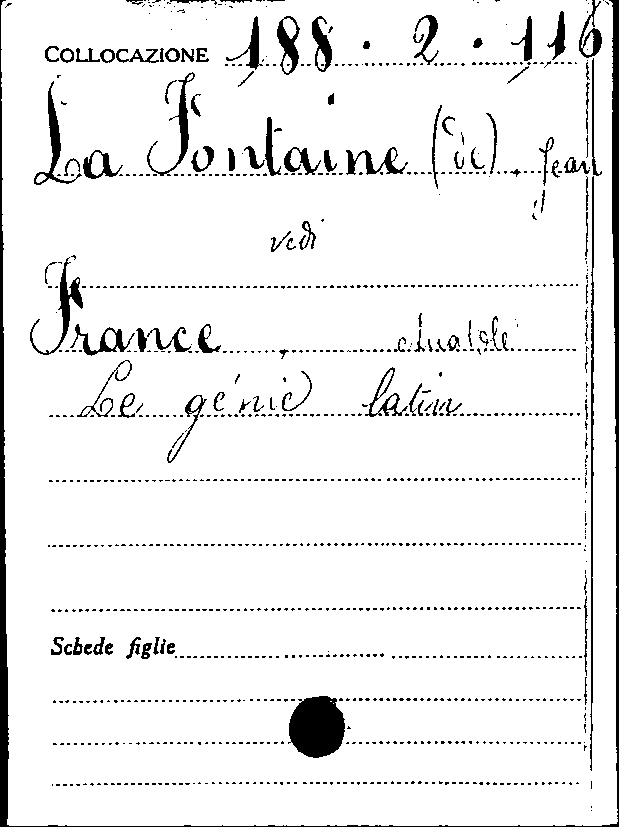 COLLOCAZIONE 188.2.116
La Fontaine (de). Jean
vedi
France, Anatole
Le génie latin
Schede figlie